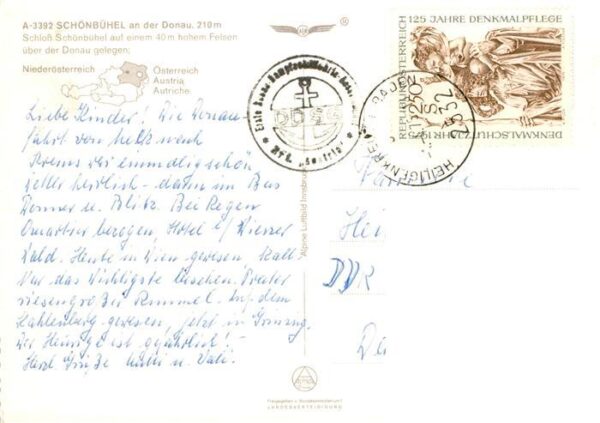 A-3392 SCHÖNBÜHEL an der Donau. 210 m
Schloß Schönbühel auf einem 40 m hohem Felsen
über der Donau gelegen;
Niederösterreich
Österreich
Austria
Autriche
Liebe Kinder! Die Donau
fahrt von Melk nach
Krems war einmalig schön
Wetter herrlich - dann im Bus
Donner u. Blitz. Bei Regen
Quartier bezogen, Hotel i/ Wiener
Wald. Heute in Wien gewesen. Kalt
Nur das Wichtigste Prater
riesengroßer Rummel. Auf dem
Kahlenberg gewesen, jetzt in Grinzing.
Der Heurige ist gefährlich! -
Herzl. Grüße Mutti u. Vati.
Alpine Luftbild Innsbruck
Erste Donau Dampfschiffahrts-
DDSG
REPUBLIK ÖSTERREICH
125 JAHRE DENKMALPFLEGE
DENKMALSCHUTZJAHR 1975
S 2.50
HEILIGENKREUZ
2532
Familie
Hei
DDR
De
Freigegeben v. Bundesministerium f.
LANDESVERTEIDIGUNG